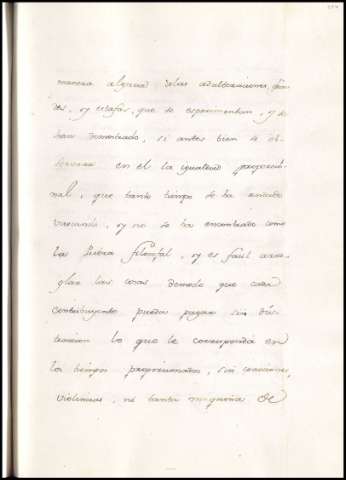 manera alguna delas adulteraciones, frau-
des, y estafas, que se esperimentan, y se
han demostrado, si antes bien se ob-
servara en el la igualdad proporcio-
nal, que tanto tiempo se ha andado
buscando, y no se ha encontrado como
la Piedra filosofal, y es facil arre-
glar las cosas demodo que cada
contribuyente pueda pagar sin dis-
traccion lo que le corresponda en
los tiempos proporcionados, sin coacciones,
violencias, ni tanta maquina de